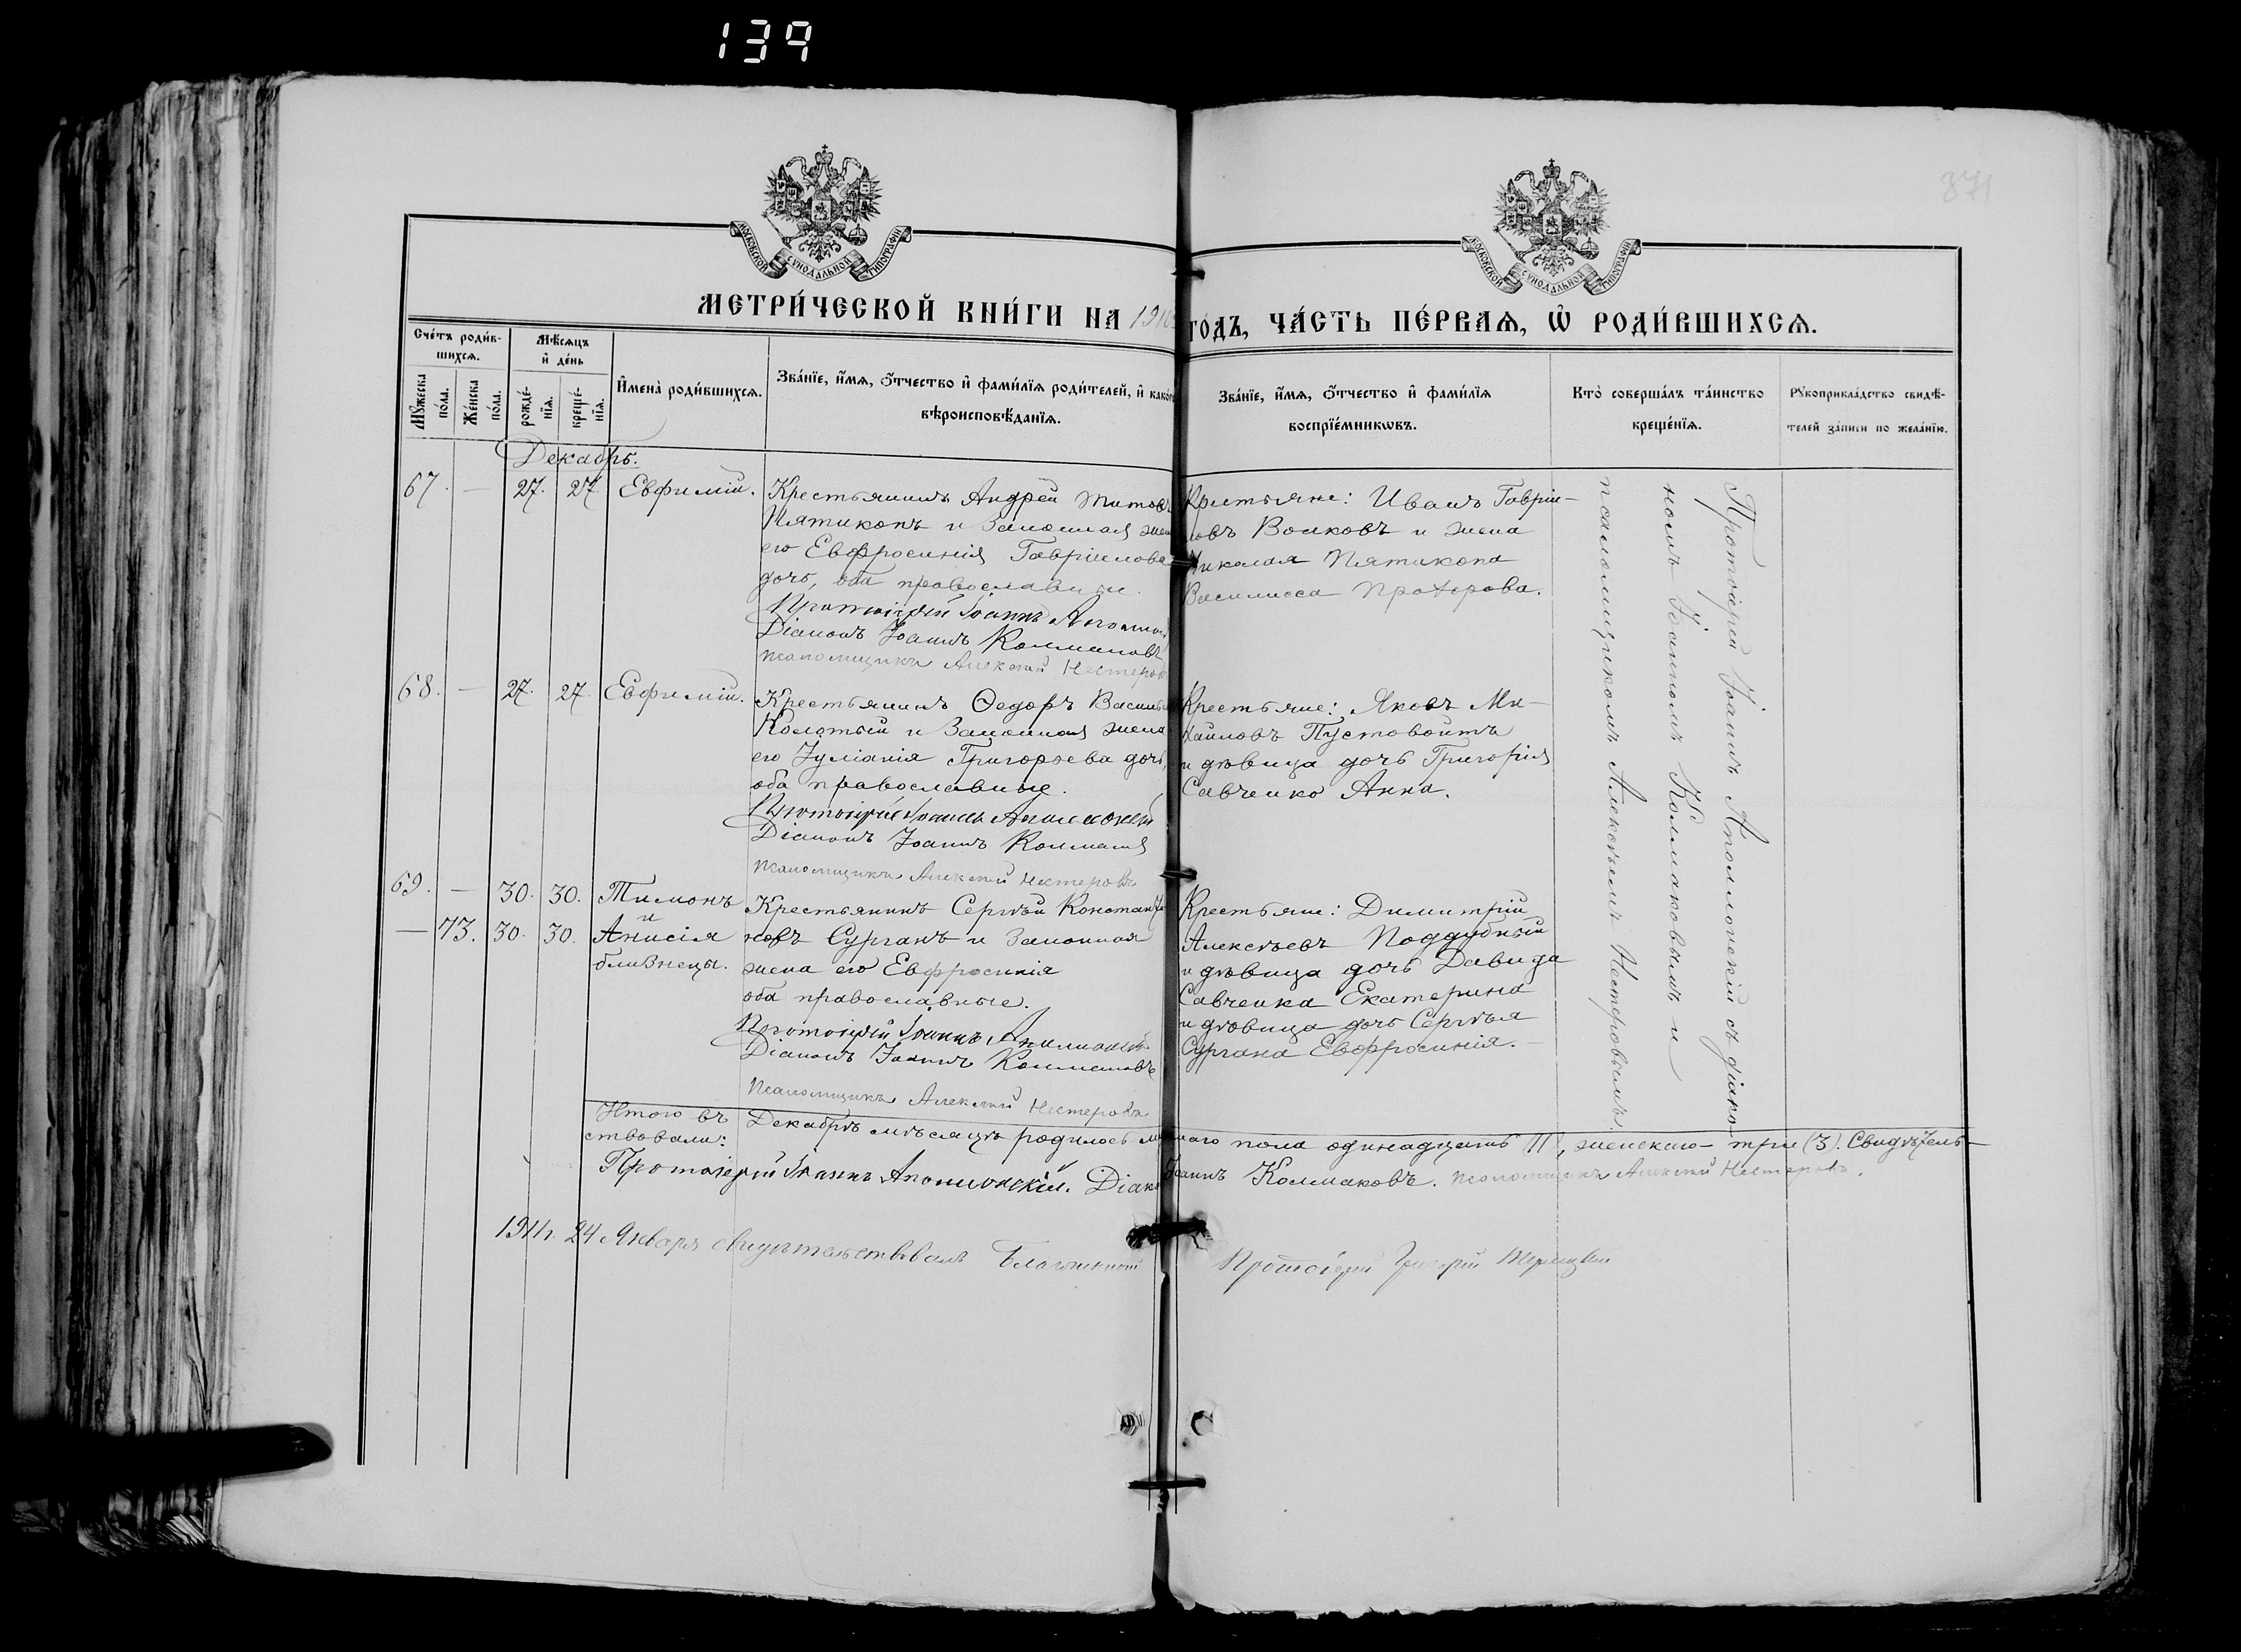 139
871
МОСКОВСКОЙ СѴНОДАЛЬНОЙ ТИПОГРАФІИ
МОСКОВСКОЙ СѴНОДАЛЬНОЙ ТИПОГРАФІИ
МЕТРИ́ЧЕСКОЙ КНИ́ГИ НА 1910
ГО́ДЪ, ЧА́СТЬ ПЕ́РВАѦ, Ѡ҆ РОДИ́ВШИХСѦ.
Сче́тъ роди́в-
шихсѧ.
Мꙋ́жеска по́ла.
Же́нска по́ла.
Мѣ́сѧцъ
и҆ де́нь
рожде́-
нїѧ.
креще́-
нїѧ.
И҆мена̀ роди́вшихсѧ.
Зва́нїе, и҆́мѧ, ѻ҆́тчество и҆ фами́лїѧ роди́телей, и҆ како́гѡ
вѣроисповѣ́данїѧ.
Зва́нїе, и҆́мѧ, ѻ҆́тчество и҆ фами́лїѧ
воспрїе́мникѡвъ.
Кто̀ соверша́лъ та́инство
креще́нїѧ.
Рꙋкоприкла́дство свидѣ́-
телей за́писи по жела́нїю.
Декабрь.
67. — 27. 27 Евфимій.
Крестьянинъ Андрей Титовъ
Пятикопъ и законная жена
его Евфросинія Гавріилова
дочь, оба православные.
Протоіерей Іоаннъ Аполлонскій
Діаконъ Іоаннъ Колмаковъ
Псаломщикъ Алексѣй Нестеровъ
Крестьяне: Иванъ Гавріи-
ловъ Волковъ и жена
Николая Пятикопа
Василисса Прохорова.
68. — 27. 27. Евфимій.
Крестьянинъ Ѳедоръ Васильевъ
Колотый и законная жена
его Іуліанія Григорьева дочь,
оба православные.
Протоіерей Іоаннъ Аполлонскій
Діаконъ Іоаннъ Колмаковъ
Псаломщикъ Алексѣй Нестеровъ
Крестьяне: Яковъ Ми-
хайловъ Пустовойтъ
и дѣвица дочь Григорія
Савченко Анна.
69. — 30. 30. Тимонъ
и
— 73. 30. 30. Анисія
близнецы.
Крестьянинъ Сергѣй Константи
новъ Сурганъ и законная
жена его Евфросинія
оба православные.
Протоіерей Іоаннъ Аполлонскій
Діаконъ Іоаннъ Колмаковъ
Псаломщикъ Алексѣй Нестеровъ
Крестьяне: Димитрій
Алексѣевъ Поддубный
и дѣвица дочь Давида
Савченка Екатерина
и дѣвица дочь Сергѣя
Сургана Евфросинія.
Протоіерей Іоаннъ Аполлонскій съ діако-
номъ Іоанномъ Колмаковымъ и
псаломщикомъ Алексѣемъ Нестеровымъ
Итого въ Декабрѣ мѣсяцѣ родилось мужнаго пола одинадцать 11, женскаго - три (3). Свидѣтель-
ствовали:
Протоіерей Іоаннъ Аполлонскій. Діаконъ Іоаннъ Колмаковъ. Псаломщикъ Алексѣй Нестеровъ.
1911г. 24 Января свидѣтельствовалъ Благочинный Протоіерей Григорій